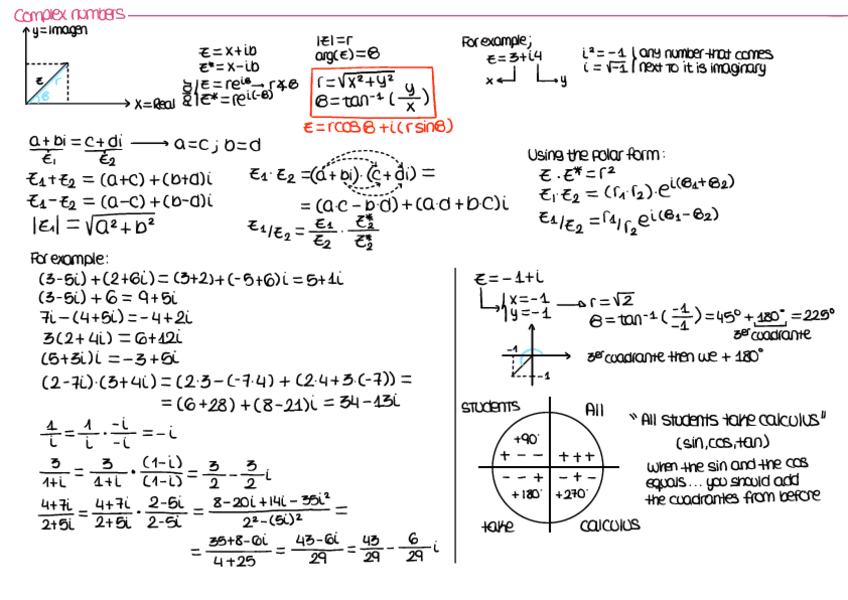 Complex numbers
y=Imagen
z
r
θ
x=Real
z=x+ib
z*=x-ib
z=re^iθ → r∡θ
z*=re^i(-θ)
|z|=r
arg(z)=θ
r=√x²+y²
θ=tan⁻¹(y/x)
z=rcosθ+i(rsinθ)
For example;
z=3+i4
x y
i²=-1 any number that comes
i=√-1 next to it is imaginary
a+bi=c+di → a=c; b=d
z₁ z₂
z₁+z₂=(a+c)+(b+d)i
z₁-z₂=(a-c)+(b-d)i
|z₁|=√a²+b²
z₁·z₂=(a+bi)·(c+di)=
=(a·c-b·d)+(a·d+b·c)i
z₁/z₂=z₁/z₂·z₂*/z₂*
Using the polar form:
z·z*=r²
z₁·z₂=(r₁·r₂)·e^i(θ₁+θ₂)
z₁/z₂=r₁/r₂e^i(θ₁-θ₂)
For example:
(3-5i)+(2+6i)=(3+2)+(-5+6)i=5+1i
(3-5i)+6=9+5i
7i-(4+5i)=-4+2i
3(2+4i)=6+12i
(5+3i)i=-3+5i
(2-7i)·(3+4i)=(2·3-(-7·4)+(2·4+3·(-7))=
=(6+28)+(8-21)i=34-13i
1/i=1/i·-i/-i=-i
3/1+i=3/1+i·(1-i)/(1-i)=3/2-3/2i
4+7i/2+5i=4+7i/2+5i·2-5i/2-5i=8-20i+14i-35i²/2²-(5i)²=
=35+8-6i/4+25=43-6i/29=43/29-6/29i
z=-1+i
x=-1 → r=√2
y=-1 θ=tan⁻¹(-1/-1)=45°+180°=225°
3er cuadrante
-1
-1
3er cuadrante then we +180°
STUDENTS All
+90°
+ - - + + +
- - + - + -
+180° +270°
take CALCULUS
"All students take calculus"
(sin,cos,tan)
when the sin and the cos
equals... you should add
the cuadrantes from before